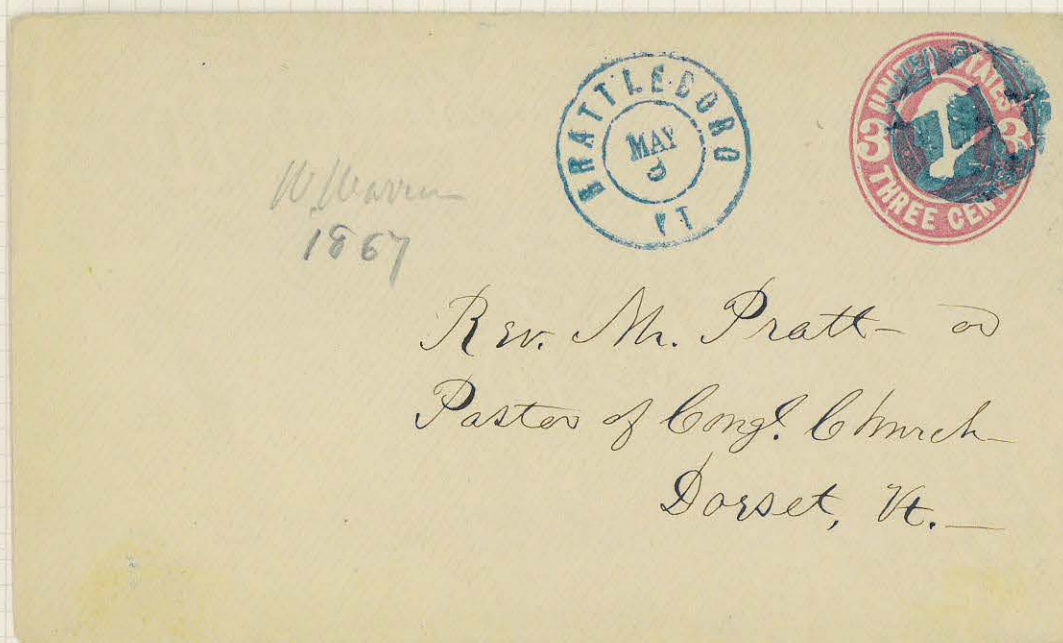 BRATTLEBORO
MAY
VT
UNITED STATES
3 3
THREE CENTS
1867
Rev. Mr. Pratt - or
Pastor of Congl. Church
Dorset, Vt. -